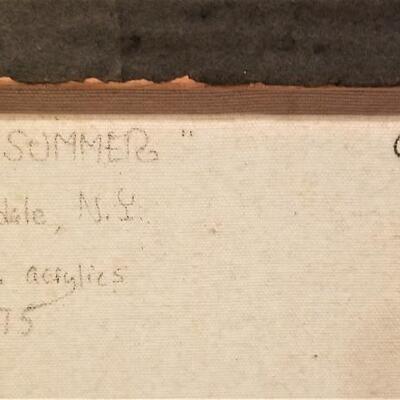 SUMMER"
dale, N.Y.
. acrylics
75